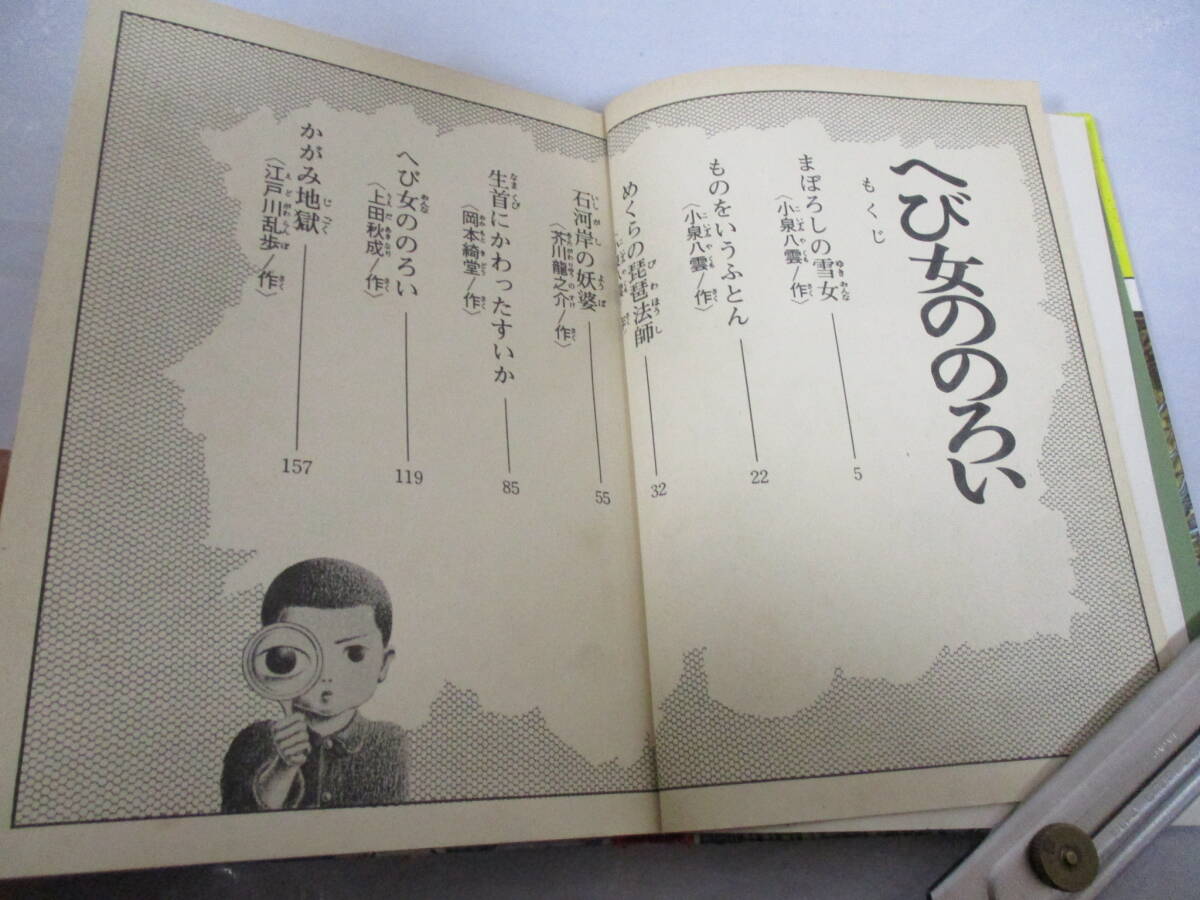 へび女ののろい
もくじ
まぼろしの雪女
5
〈小泉八雲/作〉
ものをいうふとん
22
〈小泉八雲/作〉
めくらの琵琶法師
32
石河岸の妖婆
55
〈芥川龍之介/作〉
生首にかわったすいか
85
〈岡本綺堂/作〉
へび女ののろい
119
〈上田秋成/作〉
かがみ地獄
157
〈江戸川乱歩/作〉